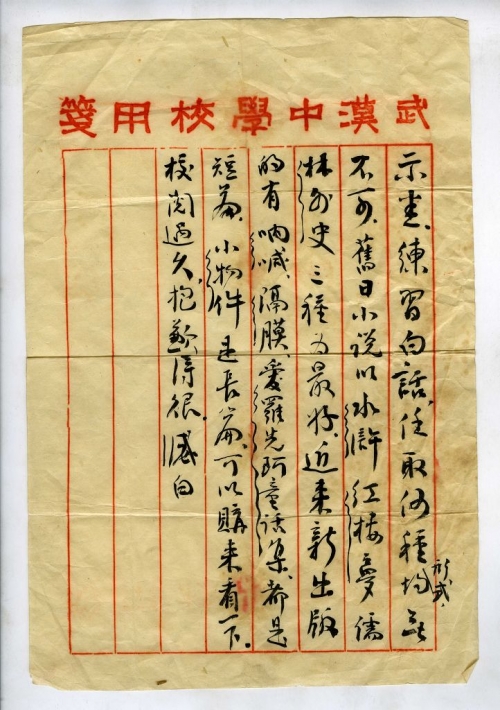 武漢中學校用箋
示悉,練習白話,任取何種形式,均無
不可,舊日小說以水滸 紅樓夢 儒
林外史三種为最好,近来新出版
的有吶喊,隔膜,愛羅先珂童話集,都是
短篇,小物件是長篇,可以購来看一下.
校閱過久,抱歉得很. 白